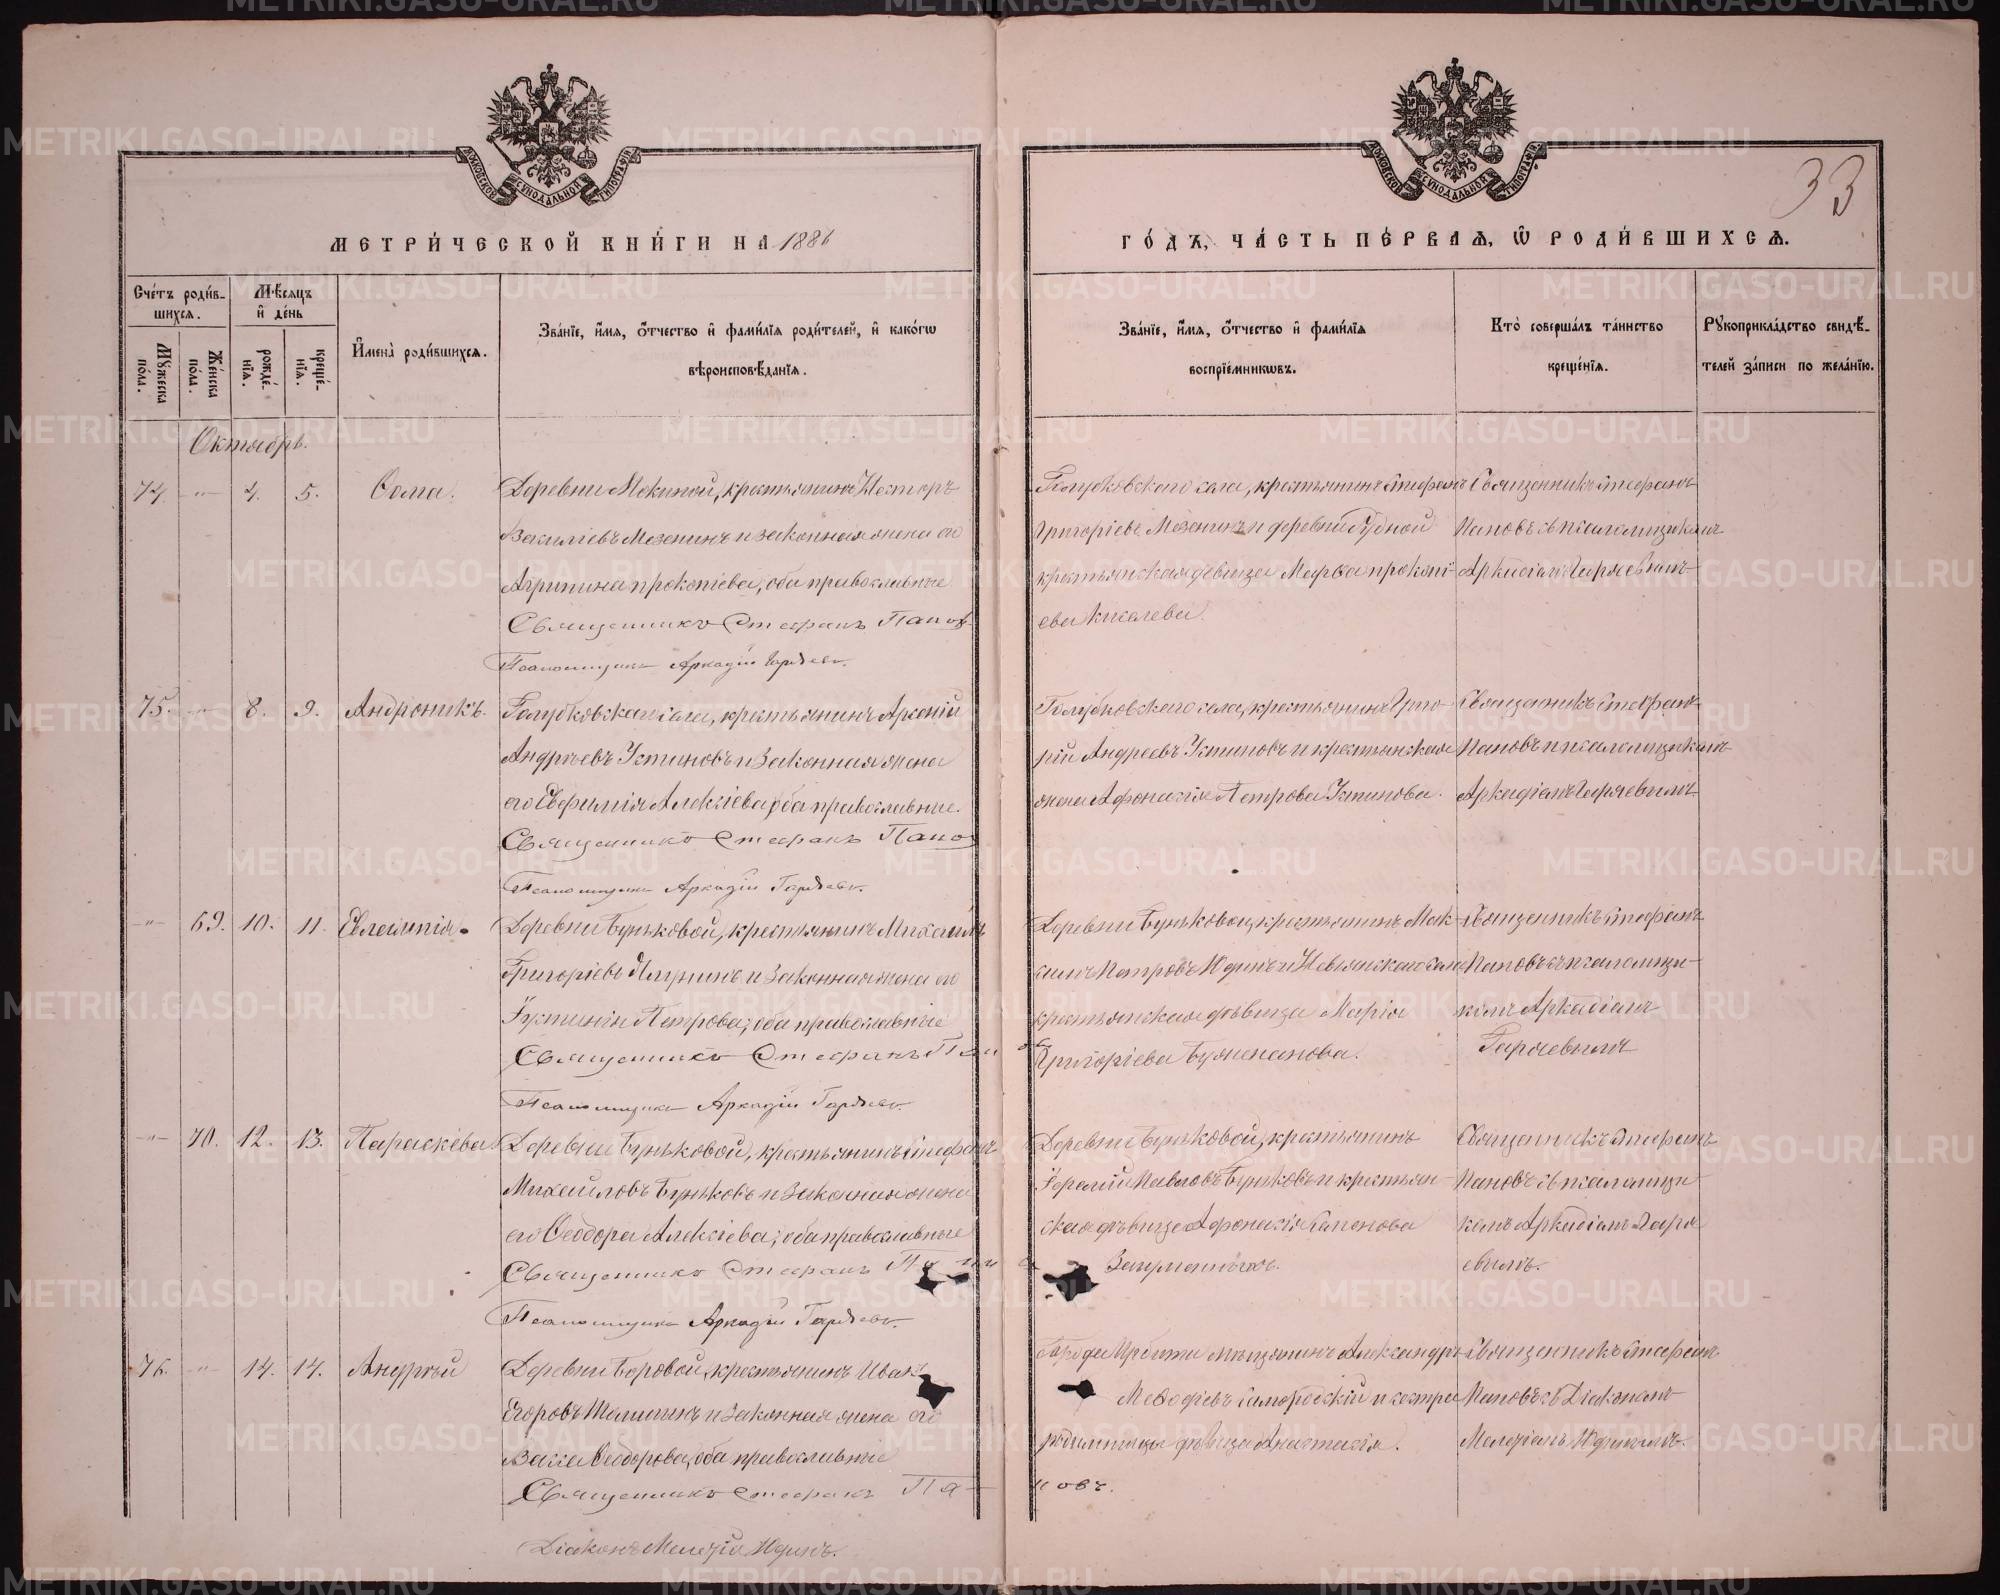 33
МЕТРИ́ЧЕСКОЙ КНИ́ГИ НА 1886
ГО́ДЪ, ЧА́СТЬ ПЕ́РВАЯ, Ѡ РОДИ́ВШИХСЯ.
Сче́тъ роди́в-
шихся.
Мѣ́сяцъ
и де́нь
Му́жеска
по́ла.
Же́нска
по́ла.
рожде́-
нїя.
креще́-
нїя.
Имена̀ роди́вшихся.
Зва́нїе, и́мя, о́тчество и фами́лїя роди́телей, и како́гѡ
вѣроисповѣ́данїя.
Зва́нїе, и́мя, о́тчество и фами́лїя
воспрїе́мникѡвъ.
Кто̀ соверша́лъ та́инство
креще́нїя.
Рукоприкла́дство свидѣ́-
телей за́писи по жела́нїю.
Октябрь.
74. -"- 4. 5. Ѳома.
Деревни Мокиной, крестьянинъ Несторъ
Васильевъ Мезенинъ и законная жена его
Агрипина Прокопіева, оба православные
Священникъ Стефанъ Поповъ
Псаломщикъ Аркадій Гаряевъ.
Голубковскаго села, крестьянинъ Стефанъ
Григоріевъ Мезенинъ и деревни Рудной
крестьянская дѣвица Марѳа Прокопі-
ева Киселева.
Священникъ Стефанъ
Поповъ съ псаломщикомъ
Аркадіемъ Гаряевымъ
75. -"- 8. 9. Андроникъ.
Голубковскаго села, крестьянинъ Арсеній
Андреевъ Устиновъ и законная жена
его Евфимія Алексіева, оба православные.
Священникъ Стефанъ Попов
Псаломщикъ Аркадій Гаряевъ.
Голубковскаго села, крестьянинъ Григо-
рій Андреевъ Устиновъ и крестьянская
жена Афонасія Петрова Устинова.
Священникъ Стефанъ
Поповъ и псаломщикомъ
Аркадіемъ Гаряевымъ
-"- 69. 10. 11. Евлампія.
Деревни Буньковой, крестьянинъ Михаилъ
Григоріевъ и законная жена его
Іустинія Петрова, оба православные
Священникъ Стефанъ Поп
Псаломщикъ Аркадій Гаряевъ.
Деревни Буньковой, крестьянинъ Мак-
симъ Петровъ Юдинъ и Невьянскаго села
крестьянская дѣвица Марія
Григоріева
Священникъ Стефанъ
Поповъ съ псаломщи-
комъ Аркадіемъ
Гаряевымъ
-"- 70. 12. 13. Параскева.
Деревни Буньковой, крестьянинъ Стефанъ
Михайловъ Буньковъ и законная жена
его Ѳеодора Алексіева, оба православные
Священникъ Стефанъ
Псаломщикъ Аркадій Гаряевъ.
Деревни Буньковой, крестьянинъ
Павловъ Буньковъ и крестьян-
ская дѣвица Афонасія
Священникъ Стефанъ
Поповъ съ псаломщи
комъ Аркадіемъ Гаря
евымъ.
76. -"- 14. 14. Андрей
Деревни Боровой, крестьянинъ Иван
Егоровъ и законная жена его
Васса Ѳеодорова, оба православные
Священникъ Стефанъ По-
повъ.
Діаконъ Мелетій Юдинъ.
Города Ирбити мѣщанинъ Александръ
Меѳодіевъ Самородскій и сестра
дѣвица Анастасія.
Священникъ Стефанъ
Поповъ съ Діакономъ
Мелетіемъ Юдинымъ.
METRIKI.GASO-URAL.RU